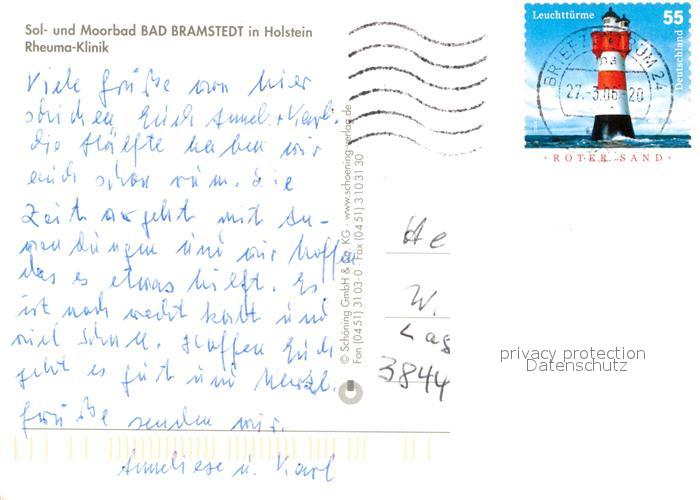 Sol- und Moorbad BAD BRAMSTEDT in Holstein
Rheuma-Klinik
Viele Grüße von hier
schicken Euch Annel. + Karl.
Die Hälfte haben wir
auch schon rum. Die
Zeit vergeht mit An-
wendungen und wir hoffen
das es etwas hilft. Es
ist noch recht kalt und
viel Schnee. Hoffen Euch
geht es gut und herzl.
Grüße senden wir.
Anneliese u. Karl
© Schöning GmbH & Co. KG · www.schoening-verlag.de
Fon (04 51) 31 03-0 Fax (04 51) 3 10 31 30
Leuchttürme 55
Deutschland
BRIEFZENTRUM 24
27.-3.06-20
ROTER SAND
He
W.
Lag
3844
privacy protection
Datenschutz